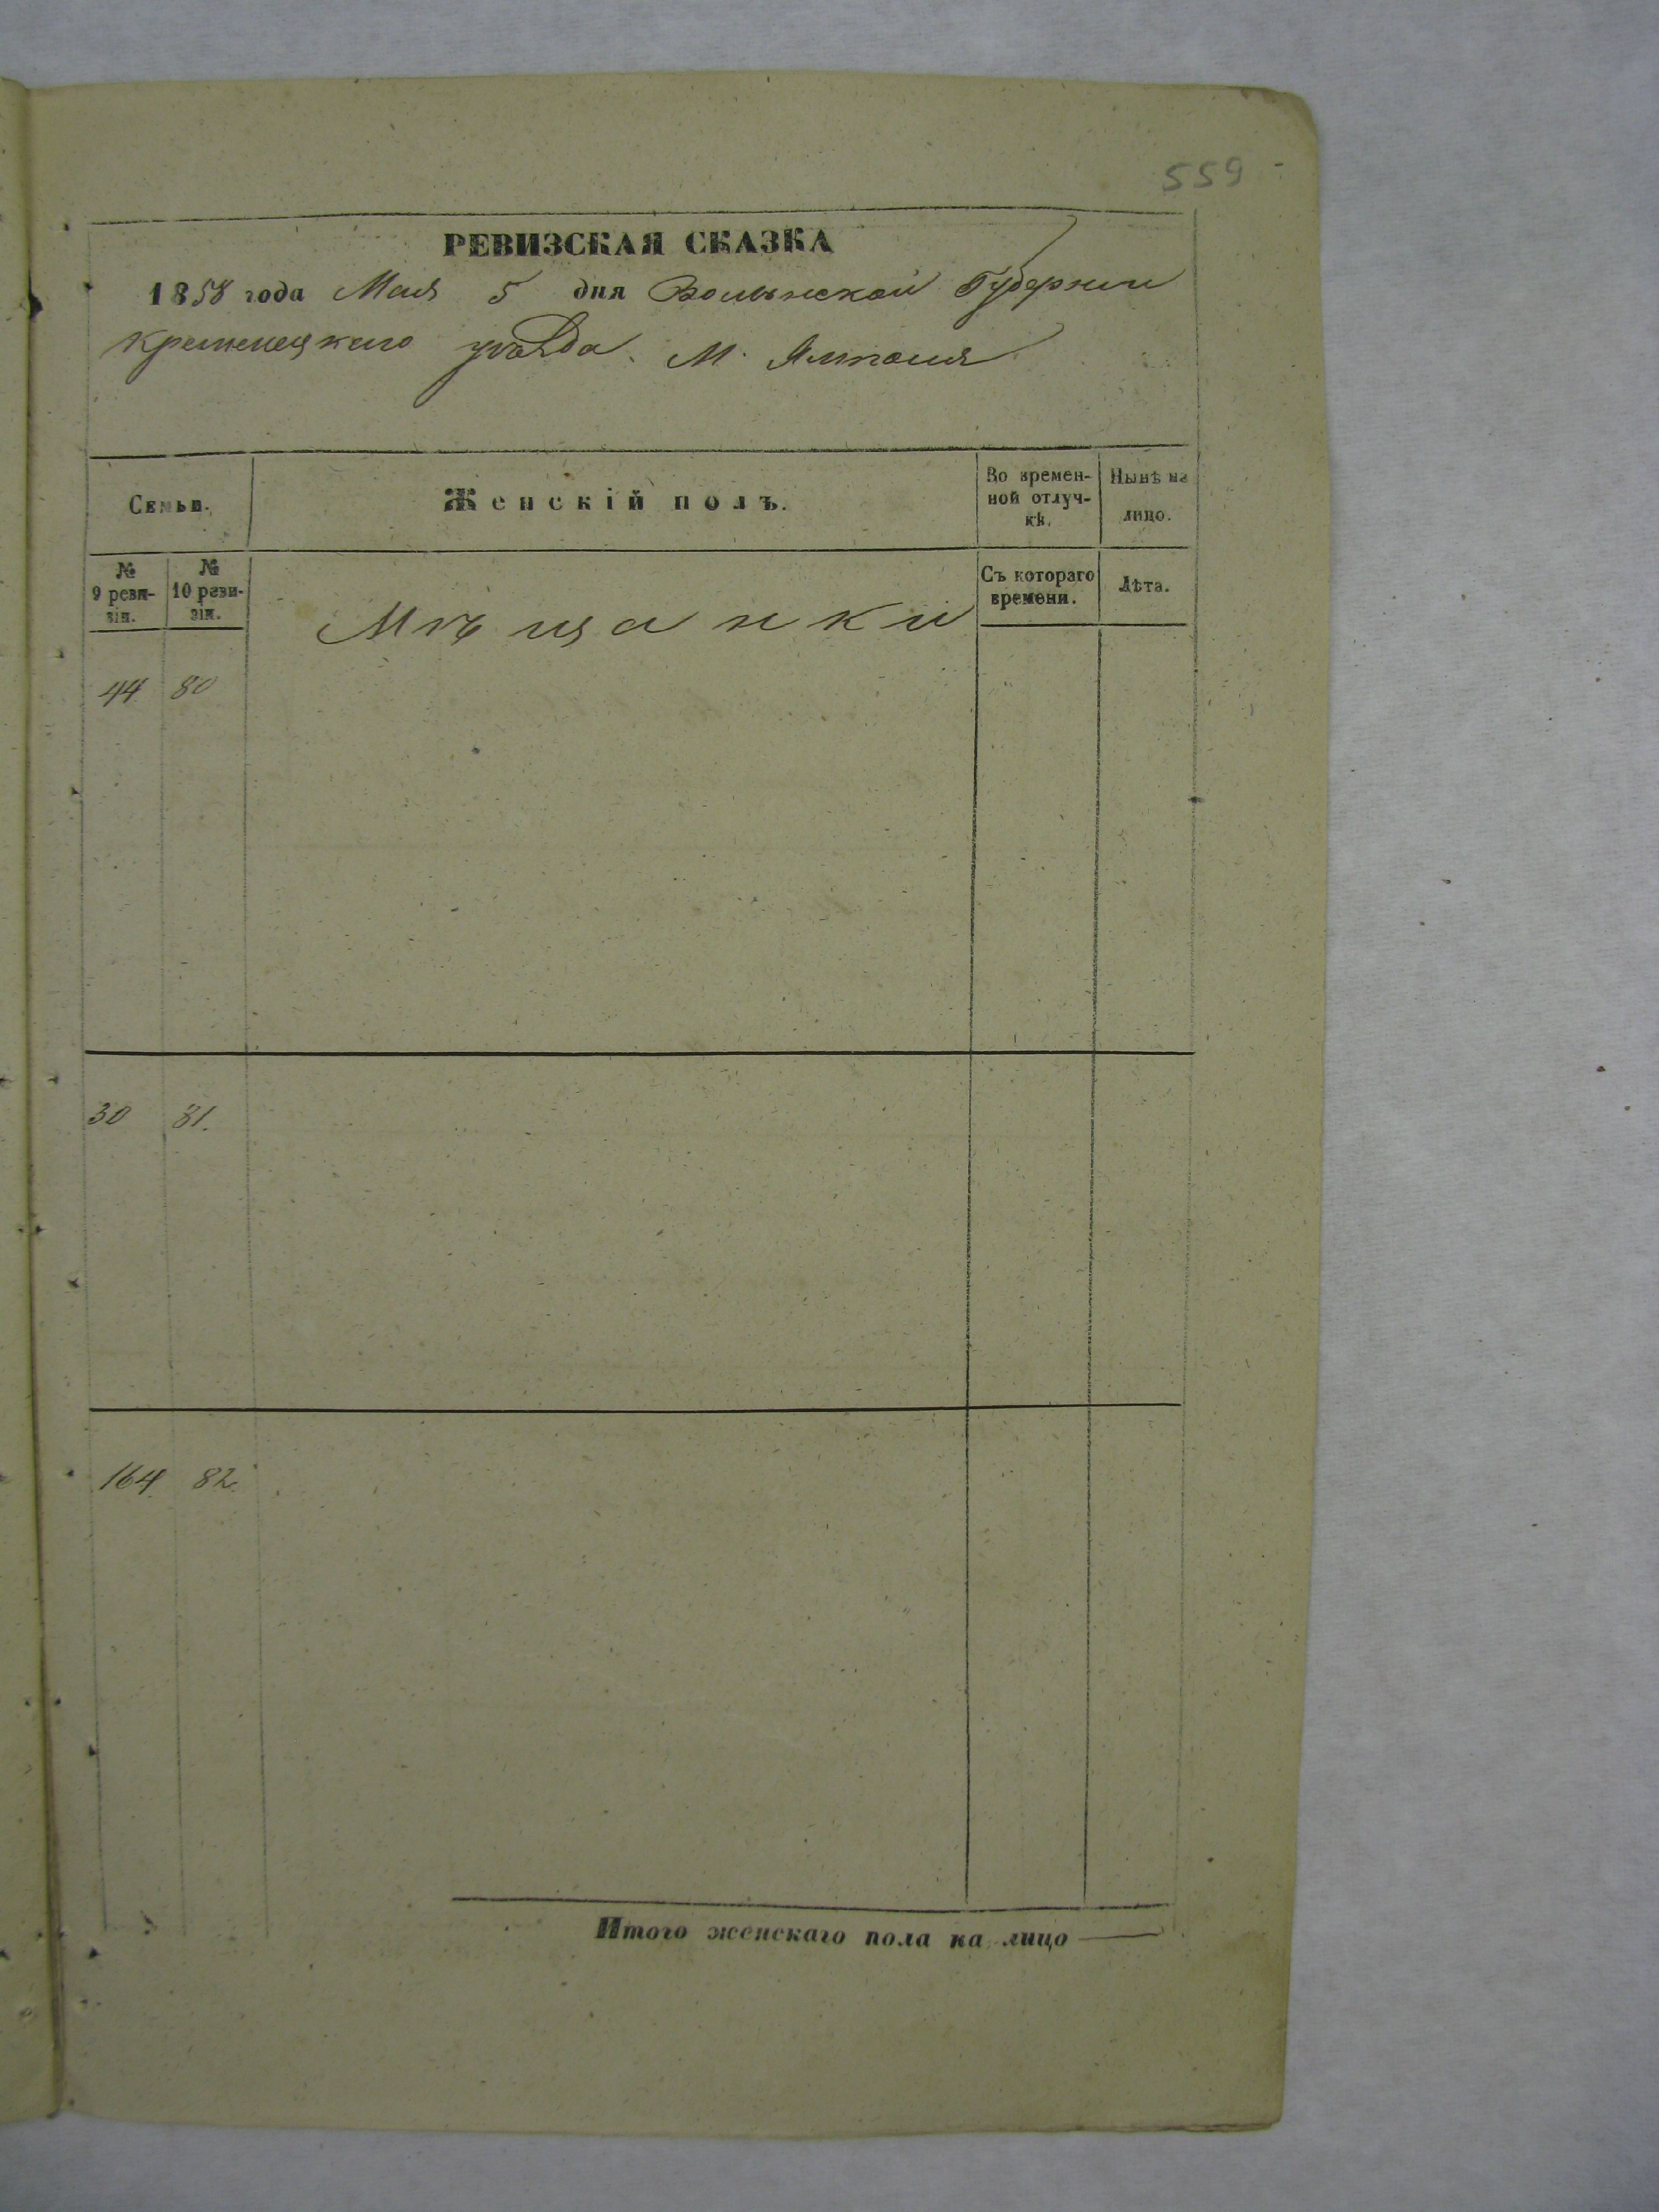 559
РЕВИЗСКАЯ СКАЗКА
1858 года Мая 5 дня Волынской Губернии
Кременецкаго уѣзда. М. Ямполя
Семьи.
Женскій полъ.
Во времен-
ной отлуч-
кѣ.
Нынѣ на
лицо.
№
9 реви-
зіи.
№
10 реви-
зіи.
Мѣщанки
Съ котораго
времени.
Лѣта.
44 80
30 81.
164 82.
Итого женскаго пола на лицо —